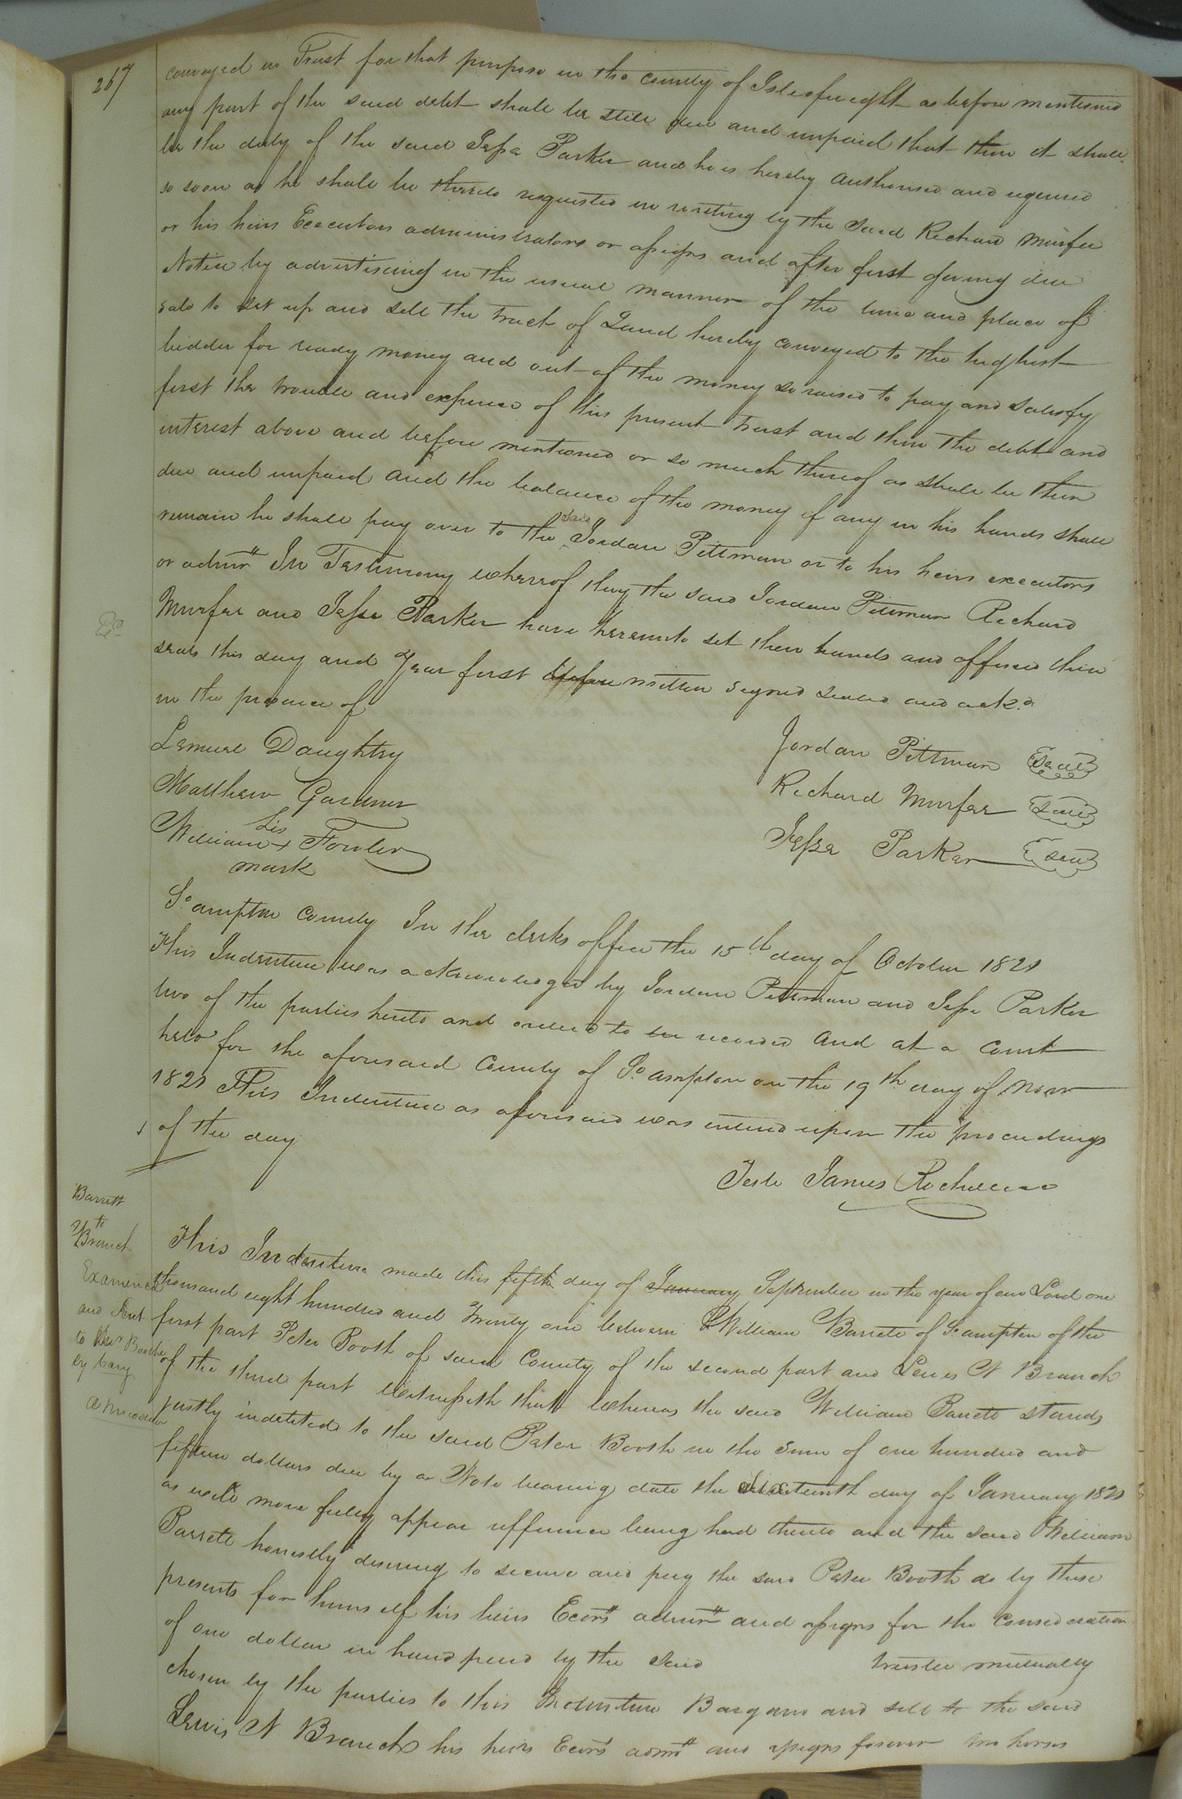 267
conveyed in Trust for that purpose in the county of Isle of wight as before mentioned
any part of the said debt shall be still due and unpaid that then it shall
be the duty of the said Jesse Parker and he is hereby authorised and required
so soon as he shall be thereto requested in writing by the said Richard Murfee
or his heirs Executors administrators or assigns and after first giving due
Notice by advertiseing in the usual manner of the time and place of
sale to set up and sell the tract of Land hereby conveyed to the highest
bidder for ready money and out of the money so raised to pay and satisfy
first the trouble and expence of this present trust and then the debt and
interest above and before mentioned or so much thereof as shall be then
due and unpaid and the balance of the money if any in his hands shall
remain he shall pay over to the said Jordan Pittman or to his heirs executors
or admrs In Testimony whereof they the said Jordan Pittman Richard
Murfee and Jesse Parker have hereunto set their hands and affixed their
seals this day and Year first before written signed sealed and ackd
in the presence of
Lemuel Daughtry
Matthew Gardner
William his + mark Fowler
Jordan Pittman seal
Richard Murfee seal
Jesse Parker seal
So ampton County In the clerks office the 15th day of October 1821
This Indenture was acknowledged by Jordan Pittman and Jesse Parker
two of the parties hereto and ordered to be recorded and at a court
held for the aforesaid County of So ampton on the 19th day of Novr
1821 This Indenture as aforesaid was entered upon the proceedings
of the day
Teste James Rochelle
Barrett
to
Branch
Examined
and sent
to
by
This Indenture made this fifth day of January September in the year of our Lord one
thousand eight hundred and Twenty one between William Barrett of So ampton of the
first part Peter Booth of said County of the second part and Lewis N Branch
of the third part Witnesseth that Whereas the said William Barrett stands
justly indebted to the said Peter Booth in the sum of one hundred and
fifteen dollars due by a Note bearing date the day of January 1821
as will more fully appear refference being had thereto and the said William
Barrett honestly desiring to secure and pay the said Peter Booth do by these
presents for himself his heirs Ecors admrs and assigns for the consideration
of one dollar in hand paid by the said trustee mutually
chosen by the parties to this Indenture Bargain and sell to the said
Lewis N Branch his heirs Ecors admrs and assigns forever two horses